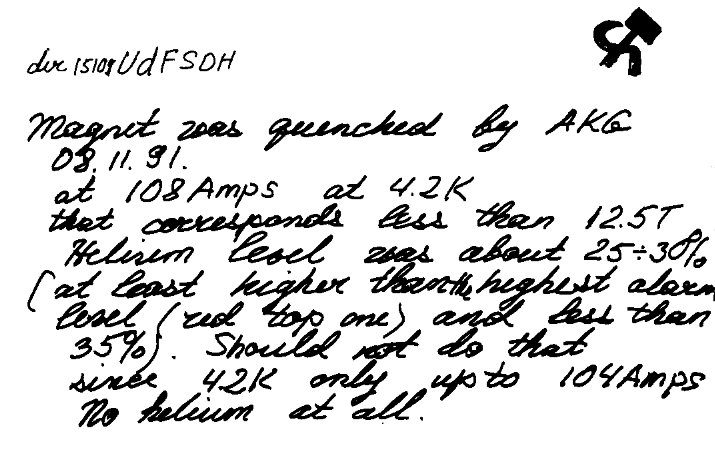 UdFSOH
Magnet was quenched by AKG
08.11.91.
at 108 Amps at 4.2K
that corresponds less than 12.5T
Helium level was about 25÷30%
(at least higher than the highest alarm
level (red top one) and less than
35%). Should not do that
since 4.2K only up to 104 Amps
No helium at all.